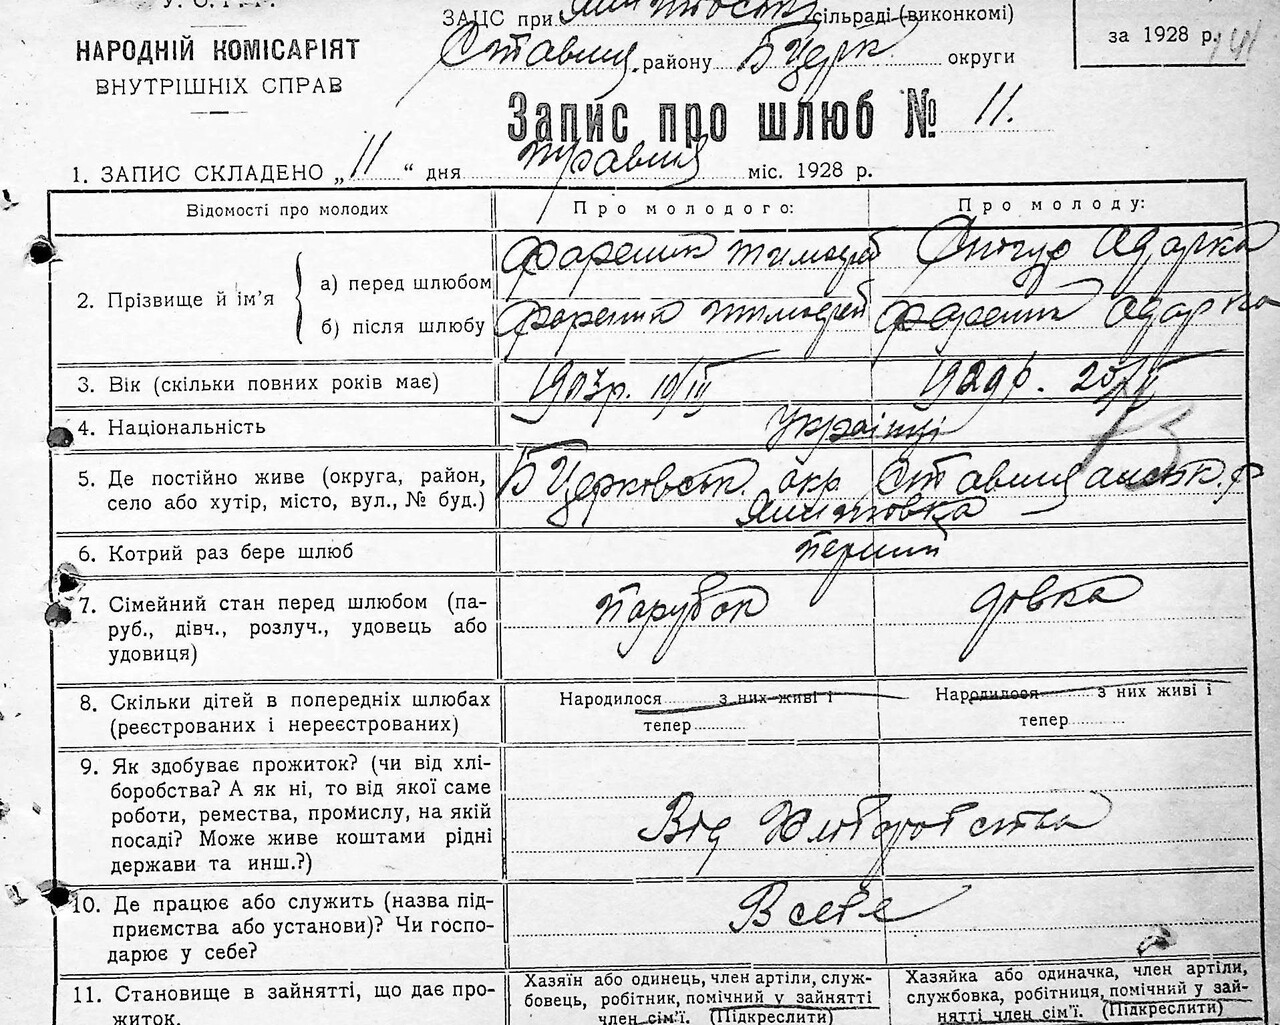 У. С. Р. Р.
НАРОДНІЙ КОМІСАРІЯТ
ВНУТРІШНІХ СПРАВ
ЗАЦС при сільраді (виконкомі)
Ставищ. району Б Церк. округи
за 1928 р.
Запис про шлюб № 11.
1. ЗАПИС СКЛАДЕНО „11“ дня травня міс. 1928 р.
Відомості про молодих
Про молодого:
Про молоду:
2. Прізвище й ім’я
а) перед шлюбом
Тимофей
Адарка
б) після шлюбу
Тимофей
Адарка
3. Вік (скільки повних років має)
4. Національність
українці
5. Де постійно живе (округа, район,
село або хутір, місто, вул., № буд.)
Б Церковськ. окр. Ставищанськ. р
6. Котрий раз бере шлюб
перший
7. Сімейний стан перед шлюбом (па-
руб., дівч., розлуч., удовець або
удовиця)
парубок
дівка
8. Скільки дітей в попередніх шлюбах
(реєстрованих і нереєстрованих)
Народилося з них живі і
тепер
Народилося з них живі і
тепер
9. Як здобуває прожиток? (чи від хлі-
боробства? А як ні, то від якої саме
роботи, ремества, промислу, на якій
посаді? Може живе коштами рідні
держави та инш.?)
Від хліборобства
10. Де працює або служить (назва під-
приємства або установи)? Чи госпо-
дарює у себе?
В себе
11. Становище в зайнятті, що дає про-
житок.
Хазяїн або одинець, член артіли, служ-
бовець, робітник, помічний у зайнятті
член сім’ї. (Підкреслити)
Хазяйка або одиначка, член артіли,
службовка, робітниця, помічний у зай-
нятті член сім’ї. (Підкреслити)